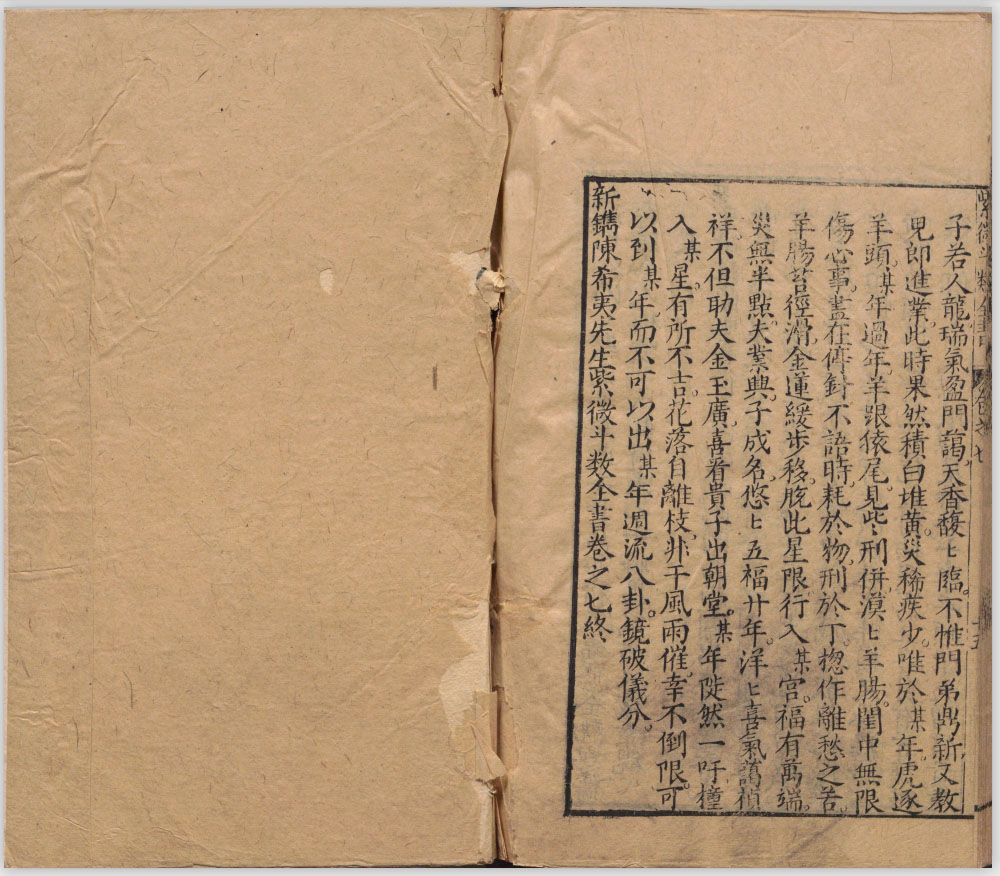 紫微斗數全書 卷之七
子若人龍瑞氣盈門藹天香馥〻臨。不惟門弟鼎新又教
兒郎進業。此時果然積白堆黄。災稀疾少。唯於某年虎逐
羊頭。某年過年。羊跟猿尾。見些〻刑併。漠〻羊腸。閨中無限
傷心事。盡在停針不語時。耗於物。刑於丁。揔作離愁之苦。
羊腸苔徑滑。金蓮緩步移。脫此星限行入某宮。福有萬端。
災無半點。夫業興子成名。悠〻五福廿年。洋〻喜氣藹禎
祥。不但助夫金玉廣。喜看貴子出朝堂。某年陡然一吁
入某星。有所不吉。花落自離枝。非干風雨催。幸不倒限。可
以到某年。而不可以出某年週流八卦。鏡破儀分。
新鐫陳希夷先生紫微斗数全書卷之七終